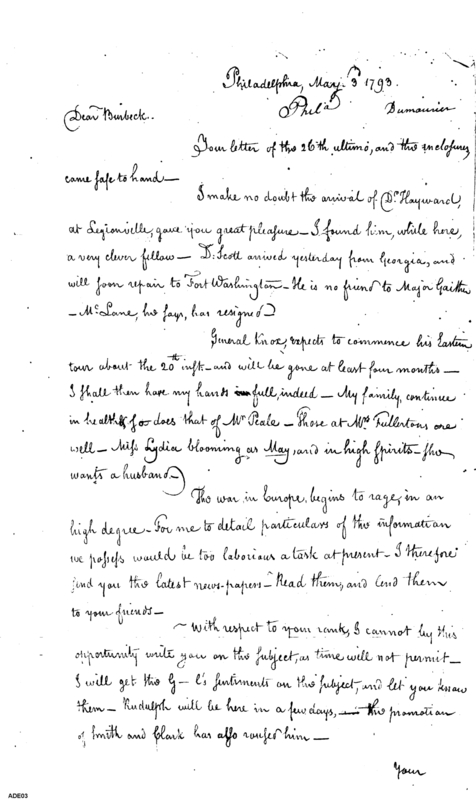 Philadelphia, May 3d 1793.
Phil'a Dumourier
Dear Burbeck.
Your letter of the 26th ultimo, and the enclosures,
came safe to hand—
I make no doubt the arrival of Dr. Hayward,
at Legionville, gave you great pleasure—I found him, while here,
a very clever fellow— Dr. Scott arrived yesterday from Georgia, and
will soon repair to Fort Washington—He is no friend to Major Gaither
—McLane, he says, has resigned
General Knox, expects to commence his Eastern
tour about the 20th inst—and will be gone at least four months—
I shall then have my hands full, indeed— My family, continue
in health & so does that of Mr Peale—Those at Mrs Fullertons are
well—Miss Lydia blooming as May, and in high spirits—she
wants a husband—
The war in Europe, begins to rage, in an
high degree—For me to detail particulars of the information
we possess would be too laborious a task at present—I therefore
send you the latest news-papers—Read them, and lend them
to your friends—
—With respect to your rank, I cannot by this
opportunity write you on the subject, as time will not permit—
I will get the G—l's sentiments on the subject, and let you know
them—Rudulph will be here in a few days, the promotion
of Smith and Clark has also roused him—
Your
ADE03